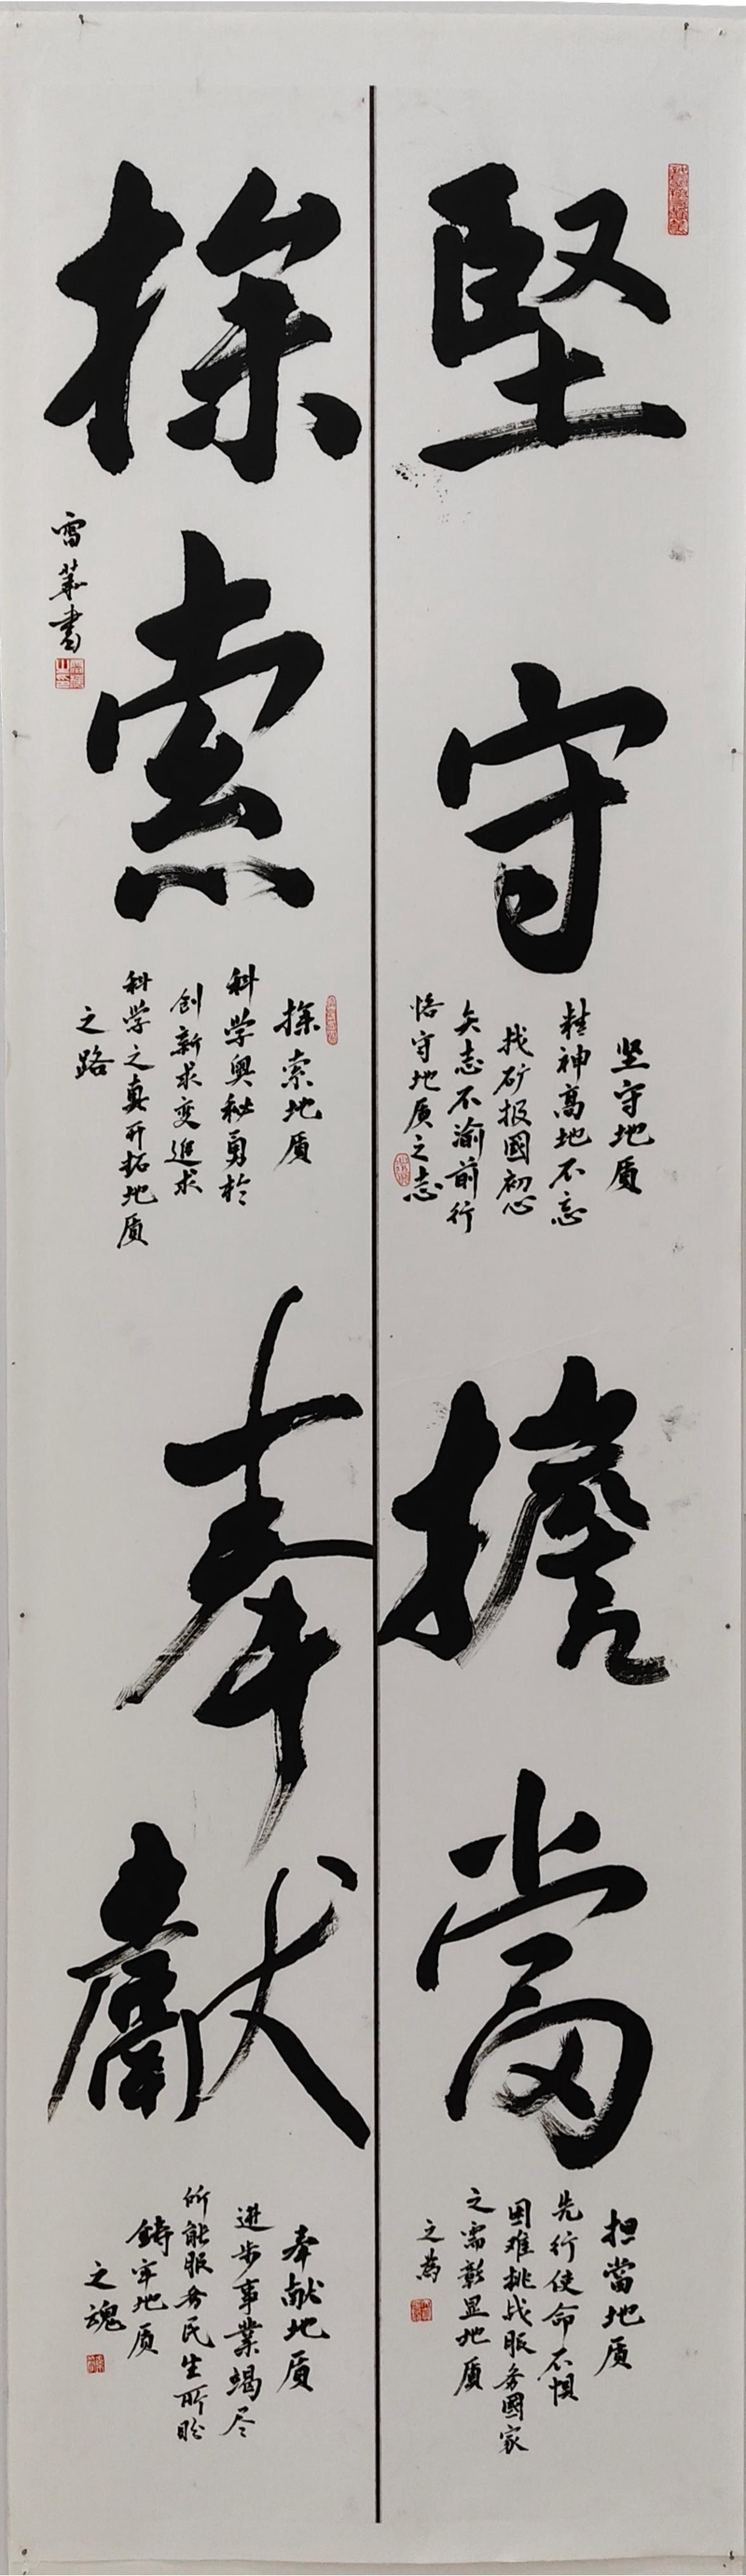 堅守
坚守地质
精神高地不忘
找矿报國初心
矢志不渝前行
恪守地质之志
擔當
担當地质
先行使命不惧
困难挑战服务國家
之需彰显地质
之为
探索
探索地质
科学奥秘勇於
创新求变追求
科学之真开拓地质
之路
奉獻
奉献地质
进步事業竭尽
所能服务民生所盼
鋳牢地质
之魂
雪華書